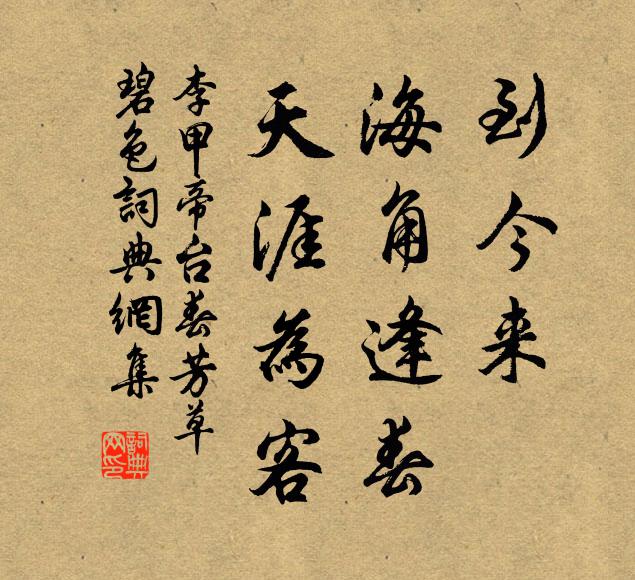 到今来
海角逢春
天涯為客
李甲帝台春芳草
碧色詞典網集
詞典
网印